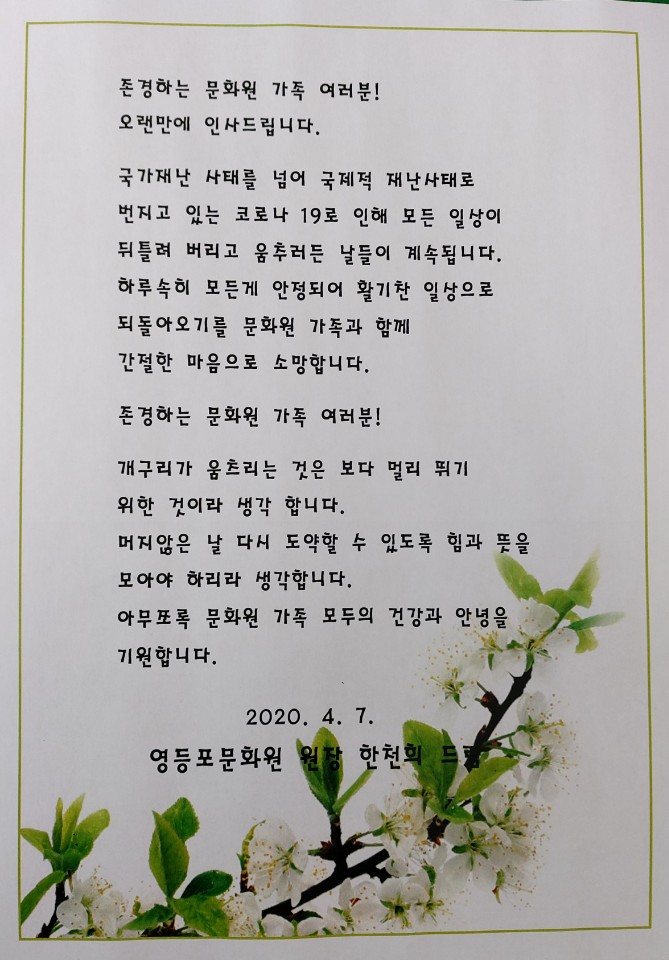 존경하는 문화원 가족 여러분!
오랜만에 인사드립니다.
국가재난 사태를 넘어 국제적 재난사태로
번지고 있는 코로나 19로 인해 모든 일상이
뒤틀려 버리고 움추러든 날들이 계속됩니다.
하루속히 모든게 안정되어 활기찬 일상으로
되돌아오기를 문화원 가족과 함께
간절한 마음으로 소망합니다.
존경하는 문화원 가족 여러분!
개구리가 움츠리는 것은 보다 멀리 뛰기
위한 것이라 생각 합니다.
머지않은 날 다시 도약할 수 있도록 힘과 뜻을
모아야 하리라 생각합니다.
아무쪼록 문화원 가족 모두의 건강과 안녕을
기원합니다.
2020. 4. 7.
영등포문화원 원장 한천희 드림